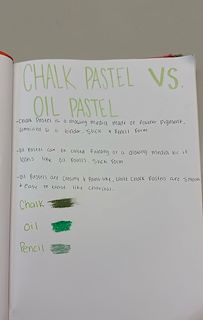 CHALK PASTEL VS.
OIL PASTEL
- Chalk Pastel is a drawing media made of powder pigment,
combined w/ a binder. Stick & Pencil form
- Oil Pastel can be called Painting or a drawing media bc it
looks like oil paints. Stick form
- Oil Pastels are creamy & paint-like, while Chalk Pastels are smooth
& easy to blend like charcoal.
Chalk
Oil
Pencil